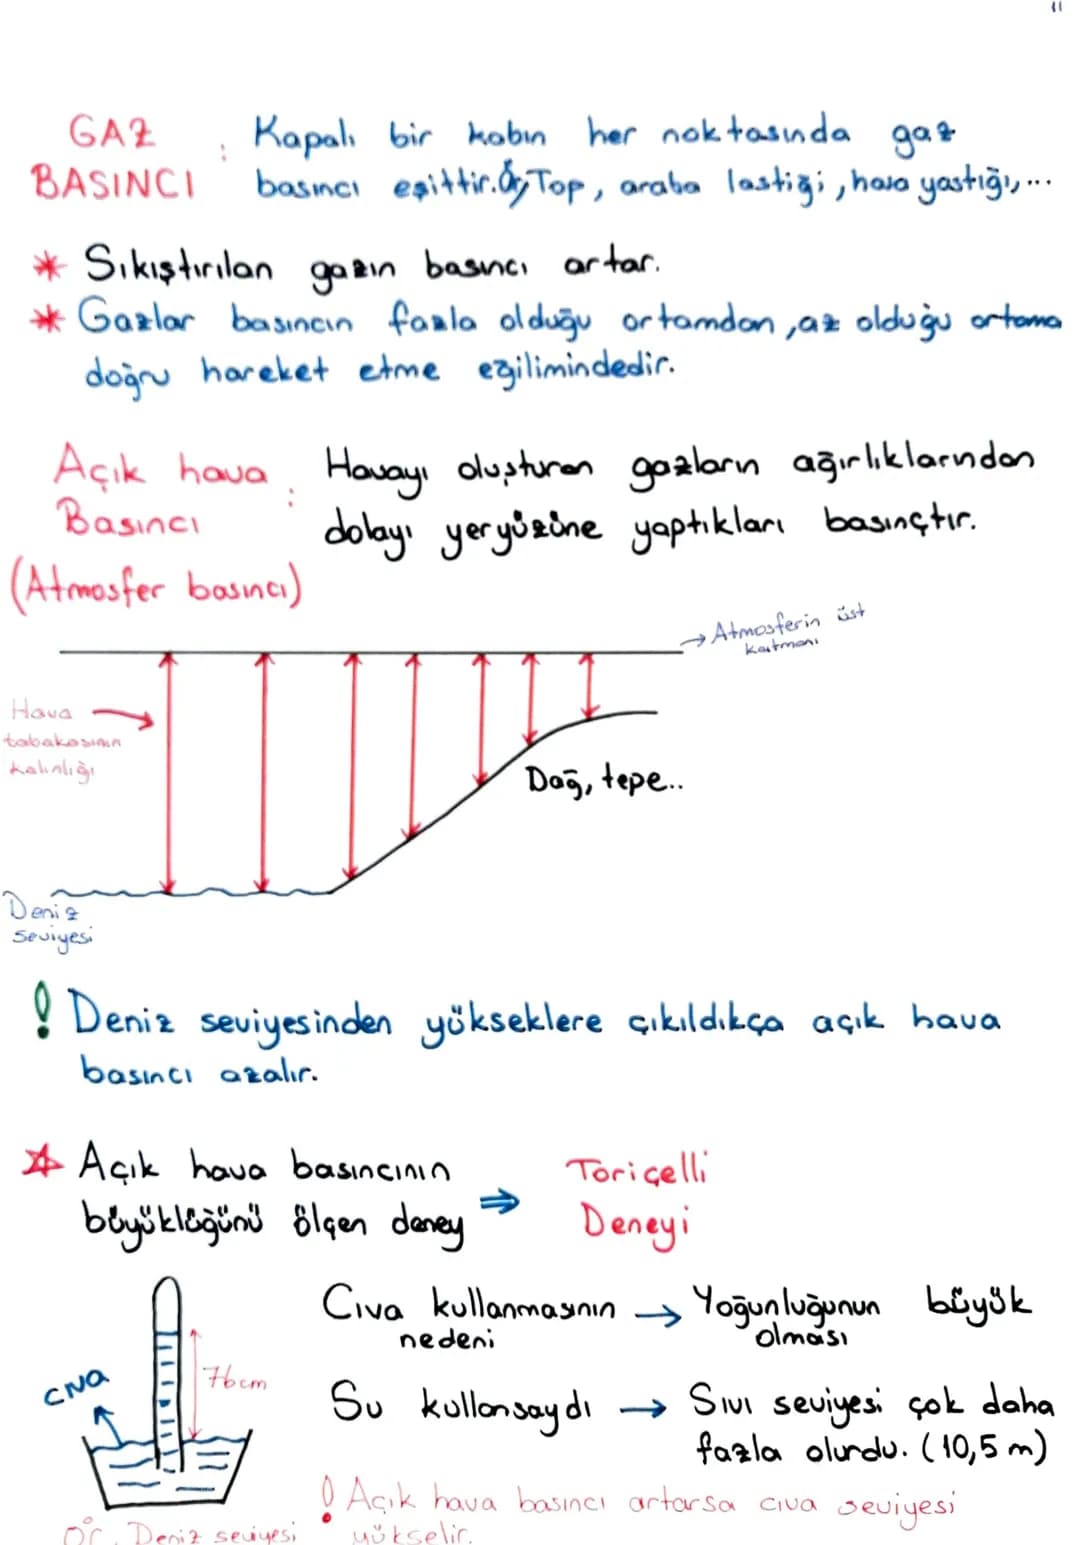 11
GAZ
BASINCI : Kapalı bir kabın her noktasında gaz
basıncı eşittir. Ör, Top, araba lastiği, hava yastığı, ...
* Sıkıştırılan gazın basıncı artar.
* Gazlar basıncın fazla olduğu ortamdan, az olduğu ortama
doğru hareket etme eğilimindedir.
Açık hava
Basıncı
(Atmosfer basıncı) :
Havayı oluşturan gazların ağırlıklarından
dolayı yeryüzüne yaptıkları basınçtır.
→ Atmosferin üst
katmanı
Hava
tabakasının
kalınlığı
Dağ, tepe..
Deniz
seviyesi
! Deniz seviyesinden yükseklere çıkıldıkça açık hava
basıncı azalır.
Açık hava basıncının
büyüklüğünü ölçen deney ⇒
Toriçelli
Deneyi
Cıva kullanmasının → Yoğunluğunun büyük
nedeni
olması
cıva
76cm
Su kullansaydı → Sıvı seviyesi çok daha
fazla olurdu. (10,5 m)
0°C, Deniz seviyesi
! Açık hava basıncı artarsa cıva seviyesi
yükselir.